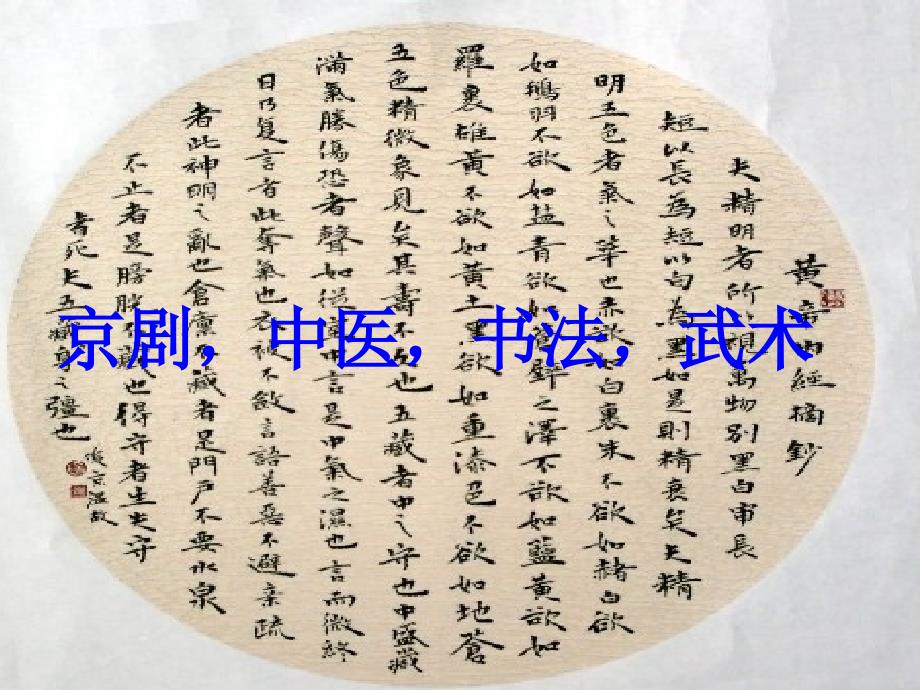 京剧，中医，书法，武术
黄帝内經摘鈔
夫精明者所以視萬物別黑白审長
短以長為短以白為黑如是則精衰矣夫精
明五色者氣之華也赤欲如白裹朱不欲如赭白欲
如鵝羽不欲如盐青欲如蒼璧之澤不欲如藍黄欲如
羅裹雄黄不欲如黄土黑欲如重漆色不欲如地蒼
五色精微象見矣其壽不久也五藏者中之守也中盛藏
滿氣勝傷恐者聲如從室中言是中氣之濕也言而微終
日乃复言者此奪氣也衣被不斂言語善惡不避亲疏
者此神明之亂也倉廩不藏者是門户不要水泉
不止者是膀胱不藏也得守者生失守
者死夫五藏身之彊也